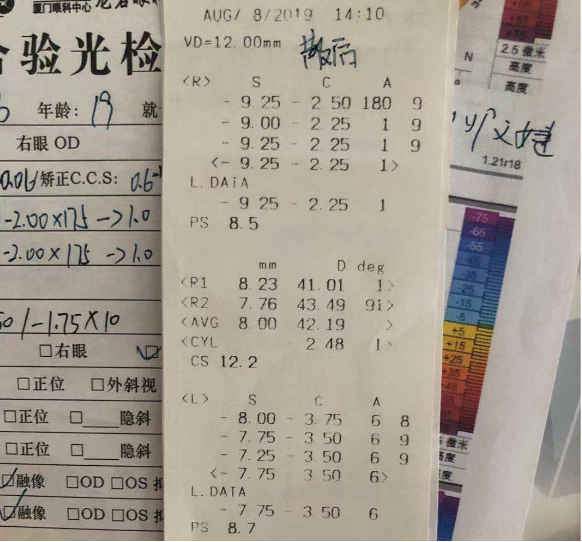 厦门眼科中心
验光检
年龄: 19 就
右眼 OD
矫正C.C.S: 0.6
-2.00×175 -> 1.0
-2.00×175 -> 1.0
/-1.75×10
□右眼
□正位 □外斜视
□正位 □ 隐斜
□正位 □ 隐斜
融像 □OD □OS
融像 □OD □OS
AUG/ 8/2019 14:10
VD=12.00mm 散后
<R> S C A
- 9.25 - 2.50 180 9
- 9.00 - 2.25 1 9
- 9.25 - 2.25 1 9
<- 9.25 - 2.25 1>
L.DATA
- 9.25 - 2.25 1
PS 8.5
mm D deg
<R1 8.23 41.01 1>
<R2 7.76 43.49 91>
<AVG 8.00 42.19 >
<CYL 2.48 1>
CS 12.2
<L> S C A
- 8.00 - 3.75 6 8
- 7.75 - 3.50 6 9
- 7.25 - 3.50 6 9
<- 7.75 3.50 6>
L.DATA
- 7.75 - 3.50 6
PS 8.7
2.5 微米
N 亮度
高度
1.21r18
-75
-65
-55
-15
-5
+5
+15
+25
+35
微米